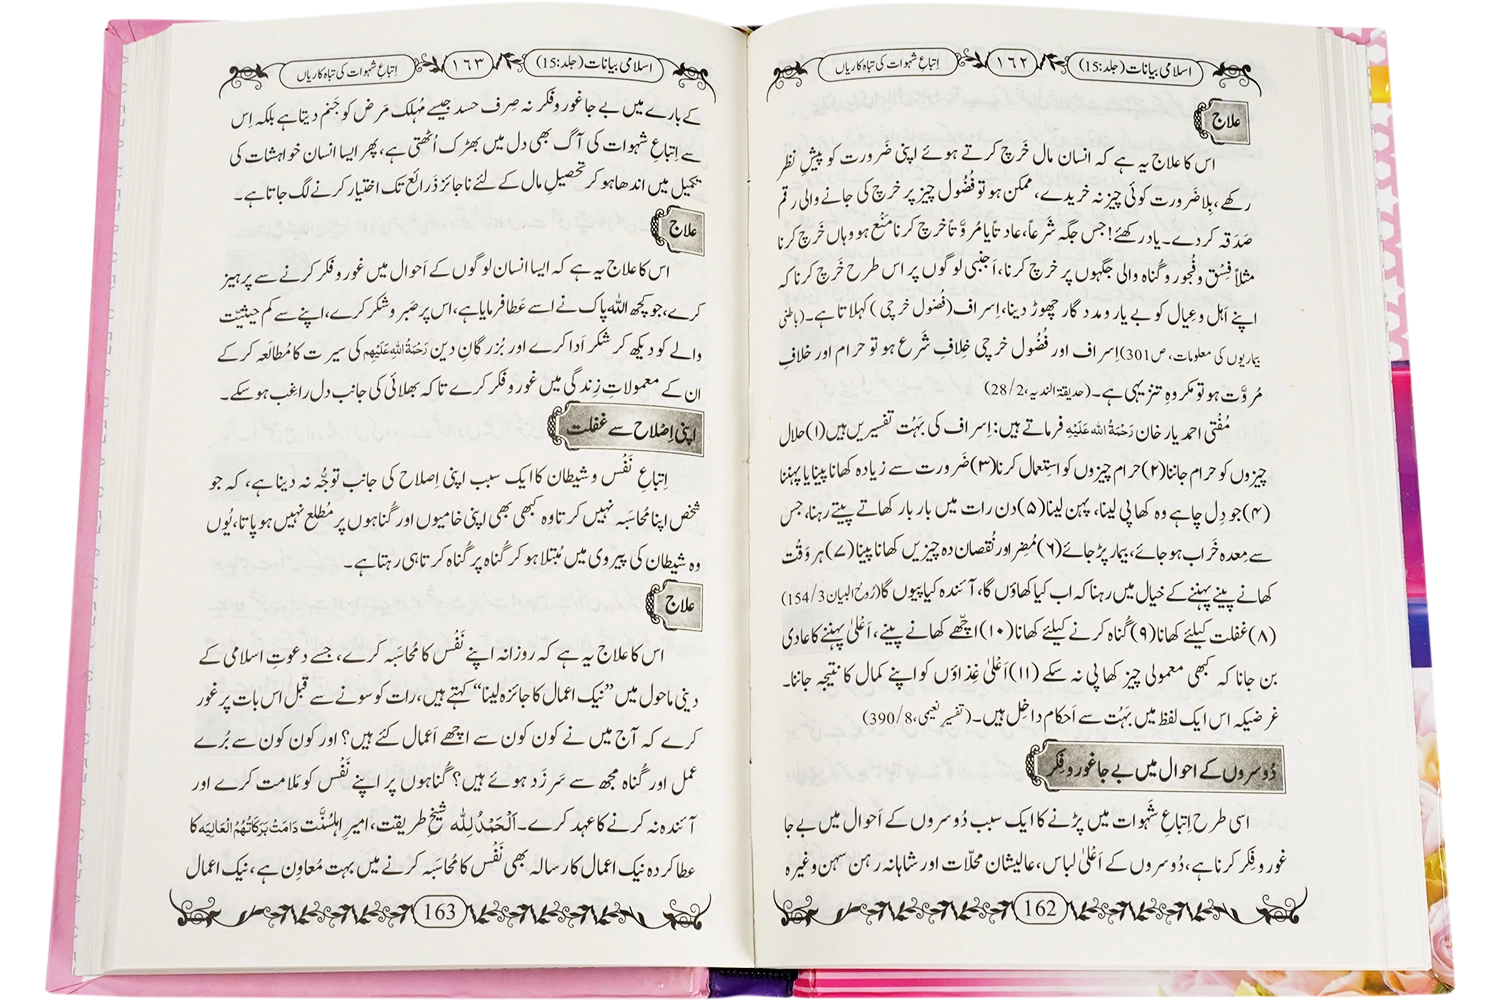 اسلامی بیانات (جلد:15)
۱۶۲
اِتباعِ شہوات کی تباہ کاریاں
علاج
اس کا علاج یہ ہے کہ انسان مال خَرچ کرتے ہوئے اپنی ضَرورت کو پیشِ نظر
رکھے، بِلاضَرورت کوئی چیز نہ خریدے، ممکن ہو تو فُضُول چیز پر خرچ کی جانے والی رقم
صَدَقہ کردے۔ یاد رکھئے! جس جگہ شَرعاً، عادتاً یا مُروّتاً خرچ کرنا مَنْع ہو وہاں خَرچ کرنا
مثلاً فِسْق و فُجور و گُناہ والی جگہوں پر خرچ کرنا، اَجنبی لوگوں پر اس طرح خَرچ کرنا کہ
اپنے اَہل و عِیال کو بے یارو مددگار چھوڑ دینا، اِسراف (فُضُول خرچی) کہلاتا ہے۔ (باطنی
بیماریوں کی معلومات، ص301) اِسراف اور فُضُول خرچی خِلافِ شَرع ہو تو حرام اور خلافِ
مُروَّت ہو تو مکروہِ تنزیہی ہے۔ (حدیقۃ الندیہ، 28/2)
مُفتی احمد یار خان رَحْمَۃُ اللہِ عَلَیْہ فرماتے ہیں: اِسراف کی بہُت تفسیریں ہیں (۱) حلال
چیزوں کو حرام جاننا (۲) حرام چیزوں کو استِعمال کرنا (۳) ضَرورت سے زیادہ کھانا پینا یا پہننا
(۴) جو دِل چاہے وہ کھا پی لینا، پہن لینا (۵) دن رات میں بار بار کھاتے پیتے رہنا، جس
سے معدہ خَراب ہو جائے، بیمار پڑ جائے (۶) مُضِر اور نُقصان دہ چیزیں کھانا پینا (۷) ہر وَقْت
کھانے پینے پہننے کے خیال میں رہنا کہ اب کیا کھاؤں گا، آئندہ کیا پیوں گا (رُوحُ البیان 154/3)
(۸) غفلت کیلئے کھانا (۹) گُناہ کرنے کیلئے کھانا (۱۰) اچّھے کھانے پینے، اَعلیٰ پہننے کا عادی
بن جانا کہ کبھی معمولی چیز کھا پی نہ سکے (۱۱) اَعلیٰ غِذاؤں کو اپنے کمال کا نتیجہ جاننا۔
غرضیکہ اس ایک لفظ میں بہُت سے اَحکام داخِل ہیں۔ (تفسیر نعیمی، 390/8)
دُوسروں کے احوال میں بے جا غور و فِکر
اسی طرح اِتباعِ شَہوات میں پڑنے کا ایک سبب دُوسروں کے اَحوال میں بے جا
غور و فِکر کرنا ہے، دُوسروں کے اَعلیٰ لباس، عالیشان محلّات اور شاہانہ رہن سہن وغیرہ
162
اسلامی بیانات (جلد:15)
۱۶۳
اِتباعِ شہوات کی تباہ کاریاں
کے بارے میں بے جا غور و فکر نہ صِرف حسد جیسے مُہلک مَرض کو جَنم دیتا ہے بلکہ اِس
سے اِتباعِ شہوات کی آگ بھی دل میں بھڑک اُٹھتی ہے، پھر ایسا انسان خواہشات کی
تکمیل میں اندھا ہو کر تحصیلِ مال کے لئے ناجائز ذَرائع تک اختیار کرنے لگ جاتا ہے۔
علاج
اس کا علاج یہ ہے کہ ایسا انسان لوگوں کے اَحوال میں غور و فکر کرنے سے پرہیز
کرے، جو کچھ اللہ پاک نے اسے عَطا فرمایا ہے، اس پر صَبر و شکر کرے، اپنے سے کم حیثیّت
والے کو دیکھ کر شکر اَدا کرے اور بُزرگانِ دین رَحْمَۃُ اللہِ عَلَیْہِم کی سیرت کا مُطالَعہ کرکے
ان کے معمولاتِ زِندگی میں غور و فکر کرے تاکہ بھلائی کی جانب دل راغِب ہو سکے۔
اپنی اِصلاح سے غفلت
اِتباعِ نَفْس و شیطان کا ایک سبب اپنی اِصلاح کی جانب توجُّہ نہ دینا ہے، کہ جو
شخص اپنا مُحاسَبہ نہیں کرتا وہ کبھی بھی اپنی خامیوں اور گُناہوں پر مُطلع نہیں ہو پاتا، یُوں
وہ شیطان کی پیروی میں مُبتلا ہو کر گُناہ پر گُناہ کرتا ہی رہتا ہے۔
علاج
اس کا علاج یہ ہے کہ روزانہ اپنے نَفْس کا مُحاسَبہ کرے، جسے دعوتِ اسلامی کے
دینی ماحول میں ”نیک اعمال کا جائزہ لینا“ کہتے ہیں، رات کو سونے سے قبل اس بات پر غور
کرے کہ آج میں نے کون کون سے اچھے اَعمال کئے ہیں؟ اور کون کون سے بُرے
عمل اور گُناہ مجھ سے سَرزَد ہوئے ہیں؟ گُناہوں پر اپنے نَفْس کو مَلامت کرے اور
آئندہ نہ کرنے کا عہد کرے۔ اَلْحَمْدُ لِلّٰہ شیخِ طریقت، امیرِ اہلسُنَّت دَامَتْ بَرَکَاتُہُمُ الْعَالِیَہ کا
عطا کردہ نیک اعمال کا رسالہ بھی نَفْس کا مُحاسَبہ کرنے میں بہت مُعاوِن ہے، نیک اعمال
163